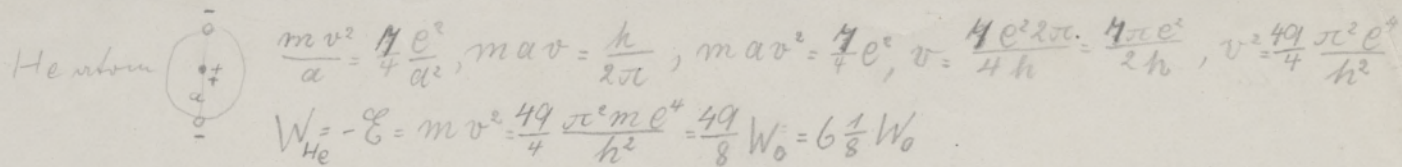 He atom $\frac{mv^2}{a} = \frac{7}{4}\frac{e^2}{a^2}$, $mav = \frac{h}{2\pi}$, $mav^2 = \frac{7}{4}e^2$, $v = \frac{7e^2 2\pi}{4h} = \frac{7\pi e^2}{2h}$, $v^2 = \frac{49}{4}\frac{\pi^2 e^4}{h^2}$
− + + a −
$W_{He} = -\mathcal{E} = mv^2 = \frac{49}{4}\frac{\pi^2 m e^4}{h^2} = \frac{49}{8}W_0 = 6\frac{1}{8}W_0$.